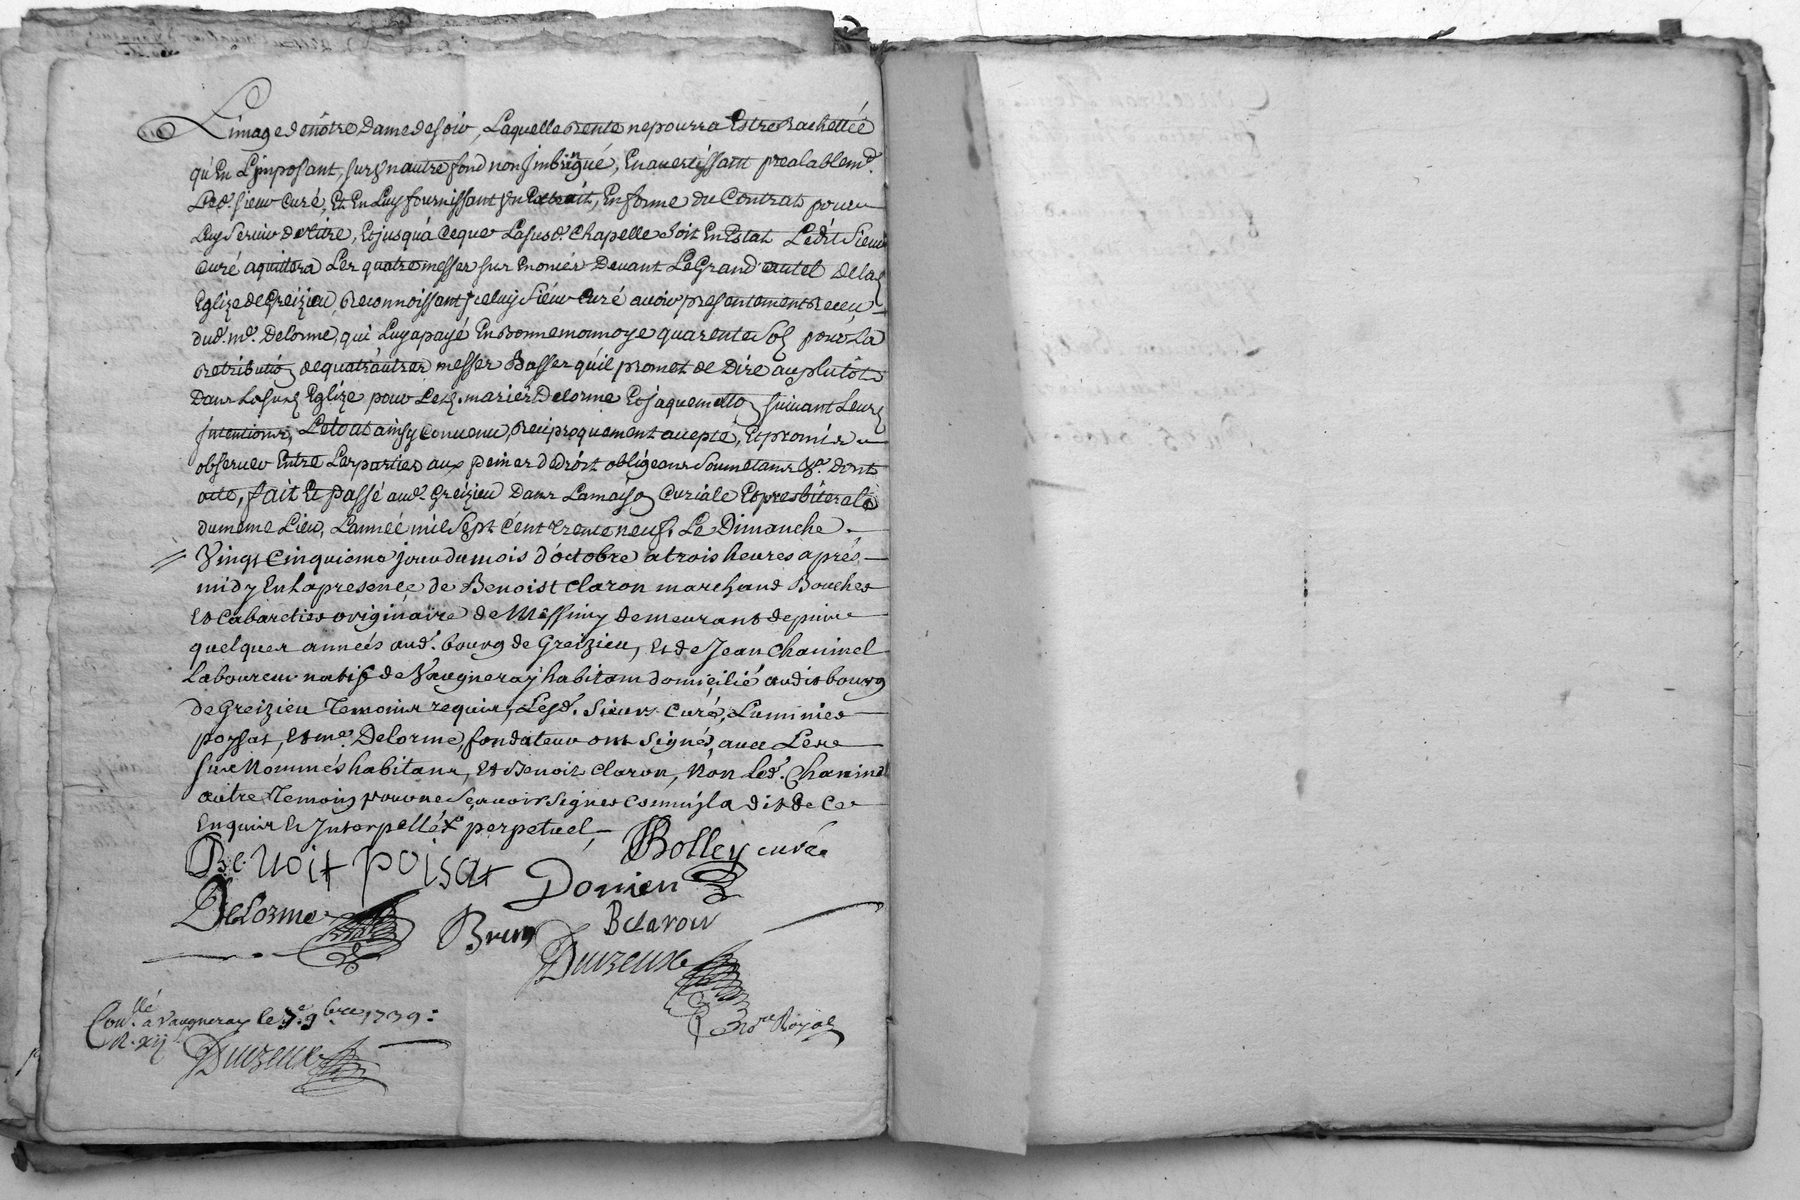 L'image de nôtre Dame de foix, Laquelle Rente ne pourra Estre Rachettéé
qu'En L'imposant, sur Un autre fond non Imbringué, En avertissant prealablemt.
Led. sieur Curé, Et En Luy fournissant Un Extrait, En forme du Contrat pour
Luy Servir de titre, Et jusqu'à Ceque Lasusd. Chapelle soit En Estat Ledit Sieur
Curé aquittera Les quatre messes sus Enoncés Devant Le Grand autel de lad
Eglize de Greizieu, Reconnoissant Iceluy Siéur Curé avoir presentement Receu
dud. me. Delorme, qui Luy a payé En Bonne monnoye quarente Sols pour La
Retribution de quatr'autres messes Basses qu'il promet de Dire au plutôt
Dans La susd Eglize pour Lesd. mariés Delorme Et jaquemetton suivant Leurs
Intentions, Le tout ainsy Convenu, Reciproquement accepté, Et promis
observer Entre Les parties aux peines de Droit obligeans Soumetans &a. dont
acte, fait Et passé aud. Greizieu Dans La maison Curiale Et presbiterale
du même Lieu, L'année mil Sept Cent trente neuf, Le Dimanche
Vingt Cinquieme jour du mois d'octobre a trois heures aprés
midy En La presence de Benoist Claron marchand Boucher
Et Cabaretier originaire de Messimy demeurant depuis
quelques années aud. bourg de Greizieu, Et de Jean Chaninel
Laboureur natif de Vaugneray habitant domicilié audit bourg
de Greizieu Temoins requis, Lesd. Sieurs Curé, Luminier
poysat, Et me. Delorme, fondateur ont signés, avec Les
sus Nommés habitans, Et Benoit Claron, Non led. Chaninel
autre Temoin pour ne Sçavoir signer Comm'il a dit de Ce
Enquis Et Interpellé perpetuel,
Benoit poisat Bolley curé
Donien
Delorme Brun B Claron
Duvzeux
Nore. Royal
Conllé. a Vaugneray le 7e. 9bre 1739:
R. xij
Duvzeux